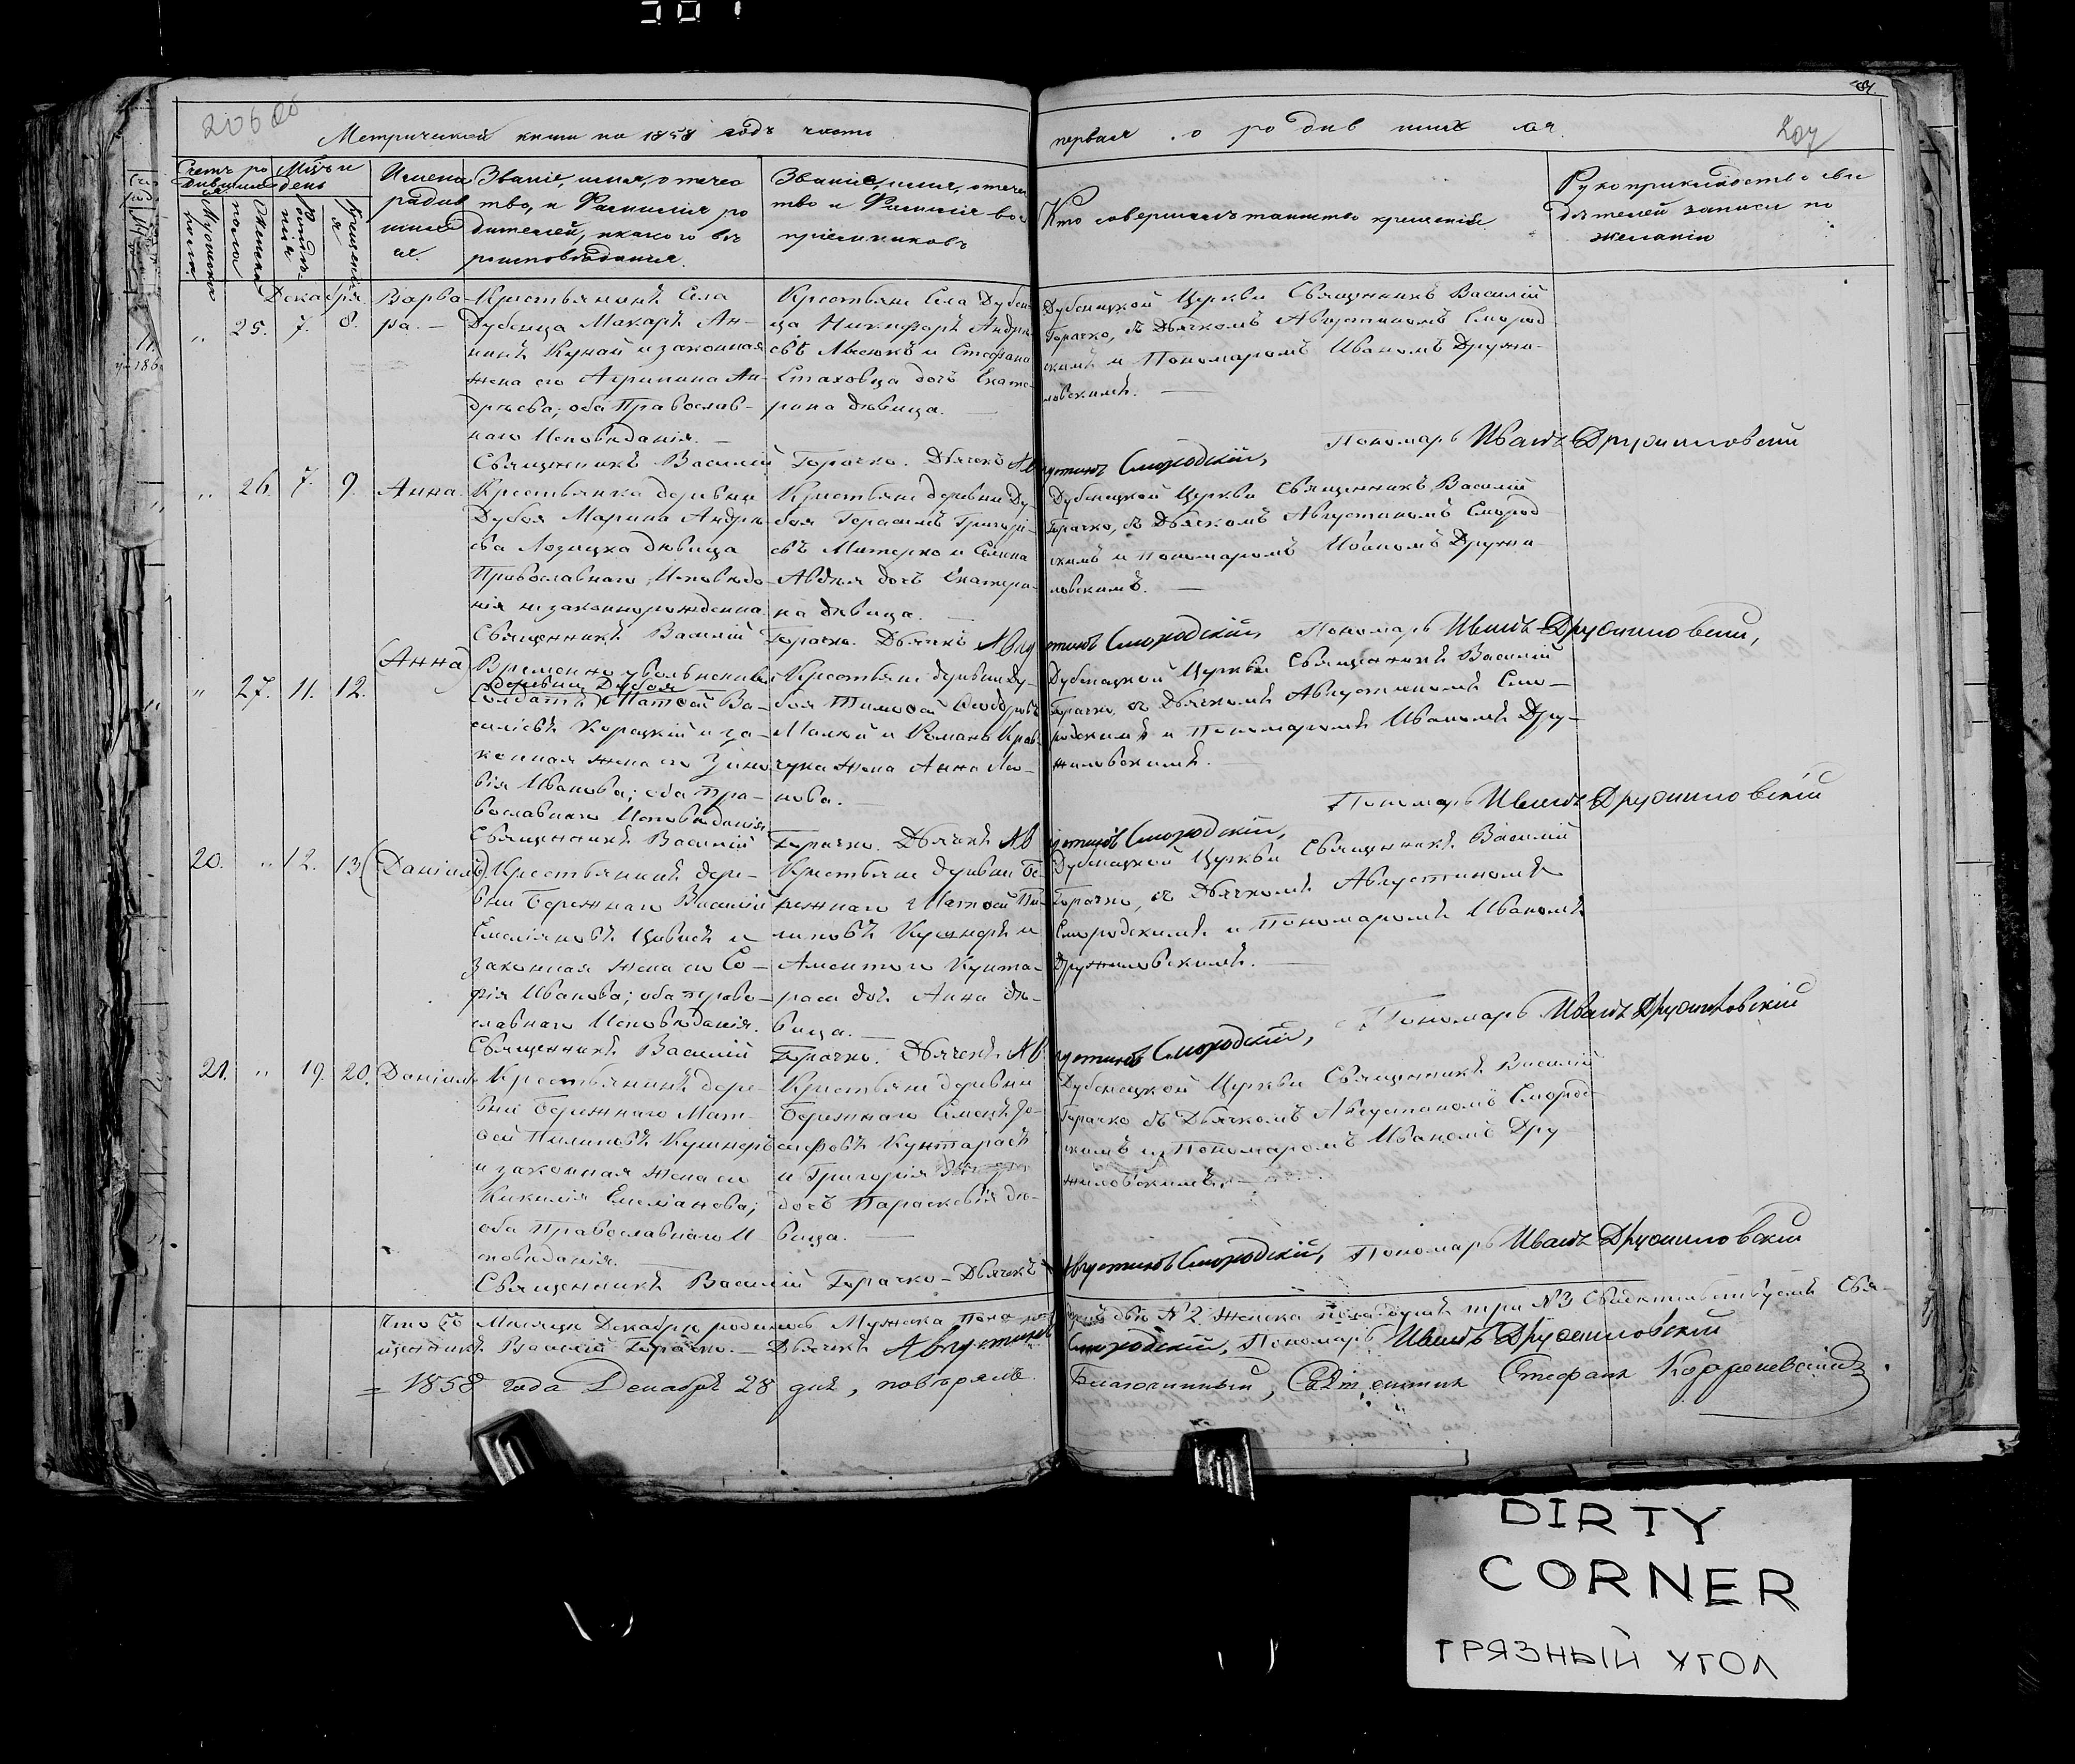 206
Метрической книги на 1858 годъ часть первая о родившихся.
207
Счетъ родившихся
Мужеска пола
Женска пола
Мѣсяцъ и день
Рожденія
Крещенія
Имена родившихся.
Званіе, имя, отечество, и Фамилія родителей, и какого вѣроисповѣданія.
Званіе, имя, отечество и Фамилія воспріемниковъ
Кто совершалъ таинство крещенія
Рукоприкладство свидѣтелей записи по желанію
Декабря.
25. 7. 8.
Варвара.
Крестьянинъ Села
Дубенца Макаръ
Кунай и законная
жена его Агрипина Ан-
дреева; оба Православ-
наго Исповѣданія.
Крестьяне Села Дубен-
ца Никифоръ Андре-
евъ и Стефана
дочь Екате-
рина дѣвица.
Дубенецкой Церкви Священникъ Василій
Горачко, съ Дьячкомъ Августиномъ Смород-
скимъ и Пономаромъ Иваномъ Дружи-
ловскимъ.
Священникъ Василій Горачко. Дьячекъ Августинъ Смородскій, Пономарь Иванъ Дружиловскій
26. 7. 9.
Анна.
Крестьянка деревни
Дубоя Марина Андре-
ева дѣвица
Православнаго Исповѣда-
нія незаконнорожденна.
Крестьяне деревни Ду-
боя Герасимъ Григорі-
евъ Митерко и Семена
Авдея дочь Екатери-
на дѣвица.
Дубенецкой Церкви Священникъ Василій
Горачко, съ Дьячкомъ Августиномъ Смород-
скимъ и Пономаромъ Иваномъ Дружи-
ловскимъ.
Священникъ Василій Горачко. Дьячекъ Августинъ Смородскій, Пономарь Иванъ Дружиловскій,
27. 11. 12.
(Анна)
Временно увольненный
деревни Дубоя
Солдатъ Матѳей Ва-
силіевъ Корецкій и за-
конная жена его Зино-
вія Иванова; оба Пра-
вославнаго Исповѣданія.
Крестьяне деревни Ду-
боя Тимоѳей Ѳеодоровъ
и Романа Крав-
чука жена Анна
Дубенецкой Церкви Священникъ Василій
Горачко, съ Дьячкомъ Августиномъ Смо-
родскимъ и Пономаромъ Иваномъ Дру-
жиловскимъ.
Священникъ Василій Горачко. Дьячекъ Августинъ Смородскій, Пономарь Иванъ Дружиловскій
20. 12. 13
(Даніилъ)
Крестьянинъ дере-
вни Бережнаго Василій
Емеліяновъ и
законная жена его Со-
фія Иванова; оба право-
славнаго Исповѣданія.
Крестьяне деревни Бе-
режнаго Матѳей Пи-
липовъ Кушнеръ и
дочь Анна дѣ-
вица.
Дубенецкой Церкви Священникъ Василій
Горачко, съ Дьячкомъ Августиномъ
Смородскимъ и Пономаромъ Иваномъ
Дружиловскимъ.
Священникъ Василій Горачко. Дьячекъ Августинъ Смородскій, Пономарь Иванъ Дружиловскій
21. 19. 20.
Даніилъ
Крестьянинъ дере-
вни Бережнаго Мат-
ѳей Пилиповъ Кушнеръ
и законная жена его
Кикилія Емеліянова;
оба Православнаго И-
сповѣданія.
Крестьяне деревни
Бережнаго Іо-
сифовъ
и Григорія
дочь Параскевія дѣ-
вица.
Дубенецкой Церкви Священникъ Василій
Горачко съ Дьячкомъ Августиномъ Смород-
скимъ и Пономаромъ Иваномъ Дру
жиловскимъ.
Священникъ Василій Горачко - Дьячекъ Августинъ Смородскій, Пономарь Иванъ Дружиловскій
Что въ Мѣсяцѣ Декабрѣ родилось Мужска Пола двѣ №2. Женска три №3 Свидѣтельствуемъ Свя-
щенникъ Василій Горачко. - Дьячекъ Августинъ Смородскій, Пономарь Иванъ Дружиловскій
1858 года Декабря 28 дня, повѣрялъ Благочинный, Священникъ Стефанъ
DIRTY
CORNER
ГРЯЗНЫЙ УГОЛ